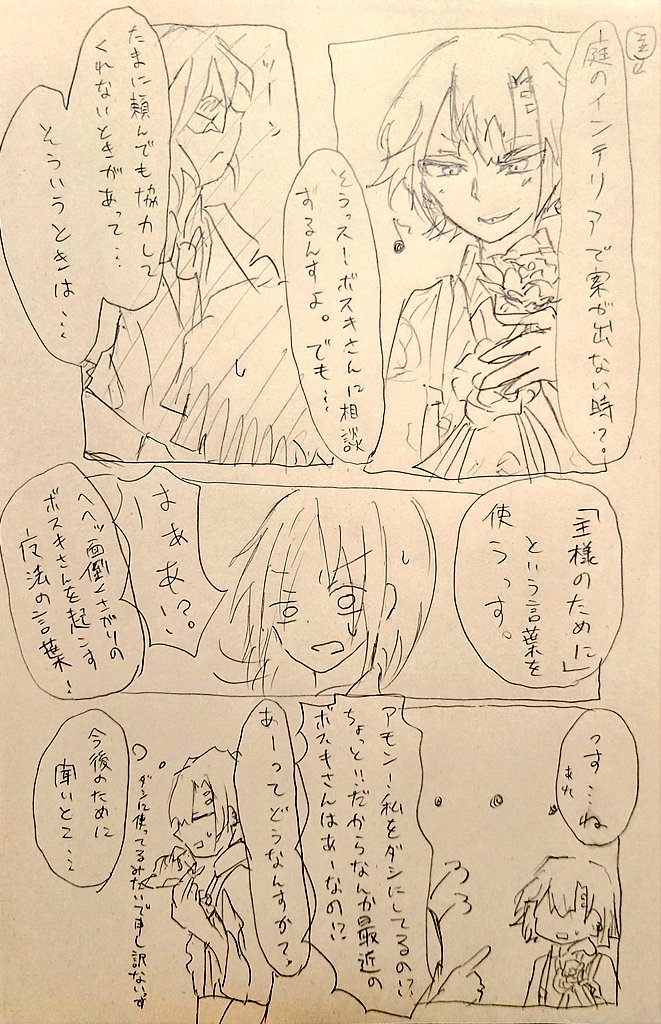 庭のインテリアで案が出ない時？。
そうっス！ボスキさんに相談
するんすよ。でも…
ツーン
たまに頼んでも協力して
くれないときがあって…
そういうときは…
「主様のために」
という言葉を
使うっす。
はぁあい？。
ヘヘッ面倒くさがりの
ボスキさんを起こす
魔法の言葉！
っす…ね
あれ
アモン！私をダシにしてるの！？
ちょっと！！だからなんか最近の
ボスキさんはあーなの！？
あーってどうなんすか？
ダシに使ってるみたいで申し訳ないっす
今後のために
聞いとこ…